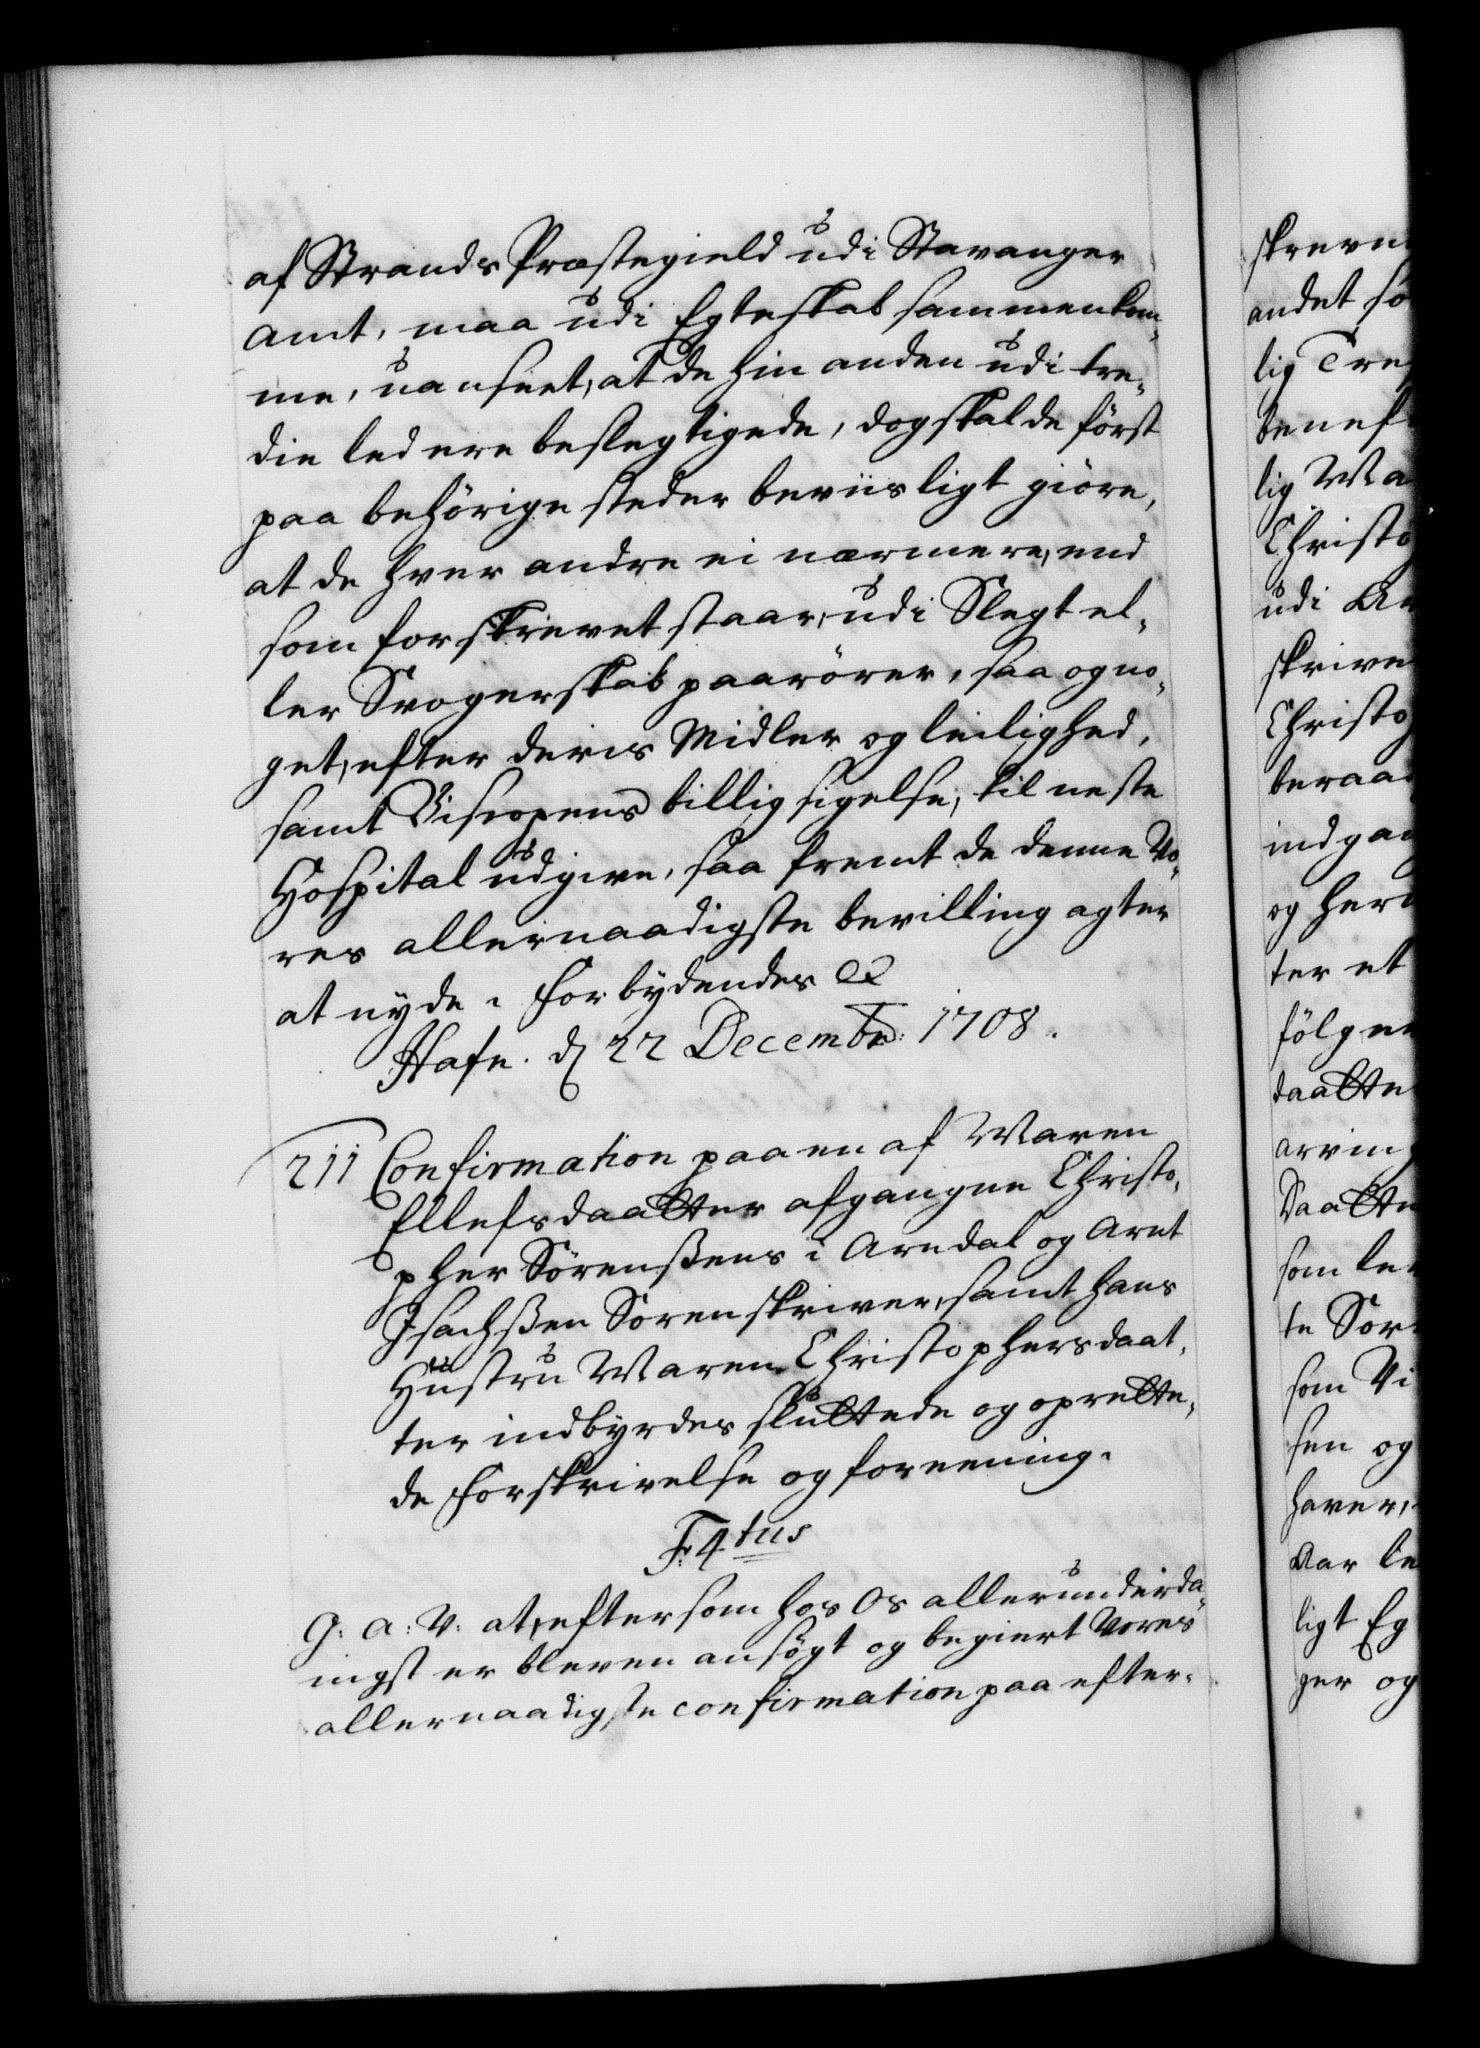 af Strands Præstegield udi Stavanger
amt, maa udi Egteskab sammenkom¬
me, uanseet, at de hin anden udi tre¬
die led ere beslegtigede, dog skal de först
paa behörige steder beviisligt giöre,
at de hver andre ei nærmere, end
som forskrevet staar, udi Slegt el¬
ler Svogerskab paarörer, saa og no¬
get, efter deris Midler og leilighed,
samt Biscopens billig sigelse, til neste
Hospital udgive, saa fremt de denne Vo¬
res allernaadigste bevilling agter
at nyde. Forbydendes &c
Hafn. d 22 Decembr: 1708.
211 Confirmation paa en af Maren
Ellefsdaatter afgangne Christo¬
pher Sörenßens i Arndal og Arnt
Isachßen Sorenskriver, samt hans
Hustru Maren Christophersdaat¬
ter indbyrdes sluttede og oprette¬
de Forskrivelse og foreening.
F: 4tus
G: A: V: at, eftersom hos Os allerunderda¬
nigst er bleven ansögt og begiert Vores
allernaadigste confirmation paa efter¬
skreven
andet
lig Tre
lig Ma
Christo
udi Ar
skrive
Christo
beraa
indga
og her
ter et
fölgen
daatte
arving
Daatte
som le
te Sor
som Vi
sen og
haver,
Aar le
ligt Eg
ger og